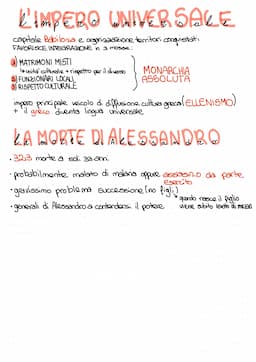 L'IMPERO UNIVERSALE
capitale Babilonia e organizzazione territori conquistati
FAVORISCE INTEGRAZIONE in 3 mosse:
1) MATRIMONI MISTI
↳ unita' culturale + rispetto per il diverso
2) FUNZIONARI LOCALI
3) RISPETTO CULTURALE
MONARCHIA
ASSOLUTA
impero principale veicolo di diffusione cultura greca (ELLENISMO)
+ il greco diventa lingua universale
LA MORTE DI ALESSANDRO
• 323 morte a soli 33 anni
• probabilmente malato di malaria oppure assassinio da parte
esercito
• gravissimo problema successione (no figli)
↳ quando nasce il figlio
viene subito
• generali di Alessandro a contendersi il potere